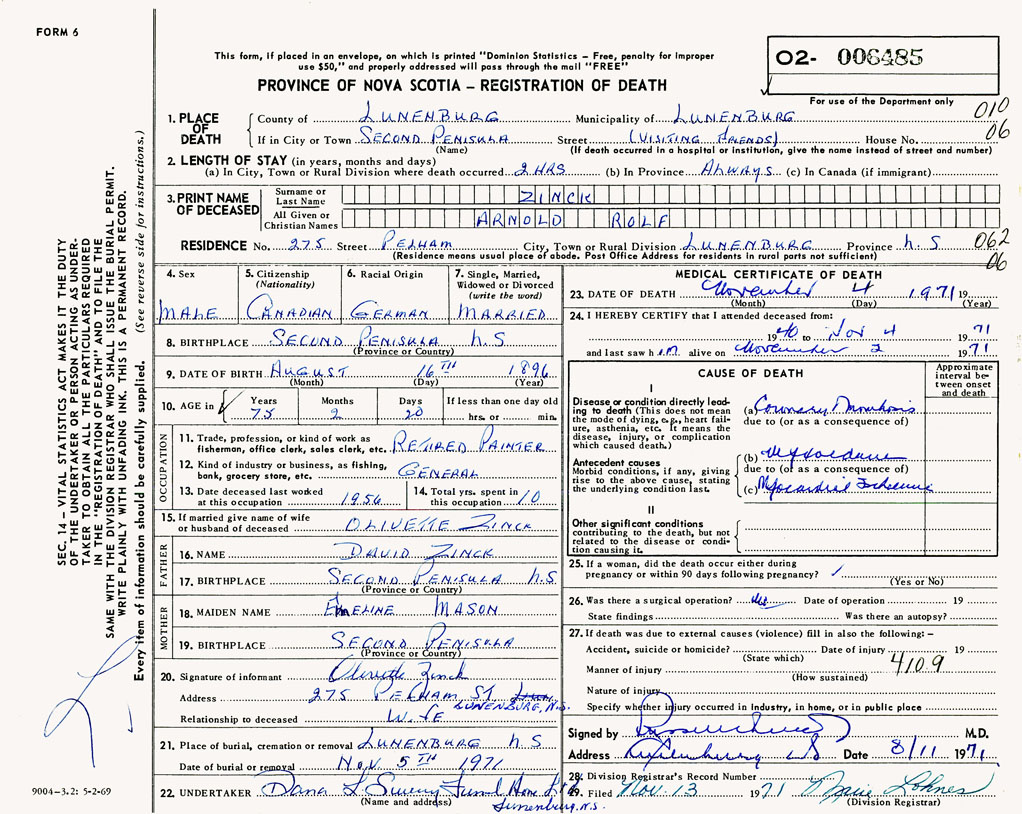 FORM 6
This form, if placed in an envelope, on which is printed "Dominion Statistics – Free, penalty for improper
use $50," and properly addressed will pass through the mail "FREE"
O2- 006485
PROVINCE OF NOVA SCOTIA – REGISTRATION OF DEATH
For use of the Department only
010
06
1. PLACE OF DEATH
County of LUNENBURG Municipality of LUNENBURG
If in City or Town SECOND PENISULA Street (VISITING FRIENDS) House No.
(Name) (If death occurred in a hospital or institution, give the name instead of street and number)
2. LENGTH OF STAY (in years, months and days)
(a) In City, Town or Rural Division where death occurred 2 HRS (b) In Province ALWAYS (c) In Canada (if immigrant)
3. PRINT NAME OF DECEASED
Surname or Last Name ZINCK
All Given or Christian Names ARNOLD ROLF
RESIDENCE No. 275 Street PELHAM City, Town or Rural Division LUNENBURG Province N.S
(Residence means usual place of abode. Post Office Address for residents in rural parts not sufficient)
062
06
4. Sex
MALE
5. Citizenship (Nationality)
CANADIAN
6. Racial Origin
GERMAN
7. Single, Married, Widowed or Divorced (write the word)
MARRIED
8. BIRTHPLACE SECOND PENISULA N.S
(Province or Country)
9. DATE OF BIRTH AUGUST 16TH 1896
(Month) (Day) (Year)
10. AGE in Years 75 Months 2 Days 20 If less than one day old hrs. or min.
OCCUPATION
11. Trade, profession, or kind of work as
fisherman, office clerk, sales clerk, etc. RETIRED PAINTER
12. Kind of industry or business, as fishing,
bank, grocery store, etc. GENERAL
13. Date deceased last worked
at this occupation 1956
14. Total yrs. spent in
this occupation 10
15. If married give name of wife
or husband of deceased OLIVETTE ZINCK
FATHER
16. NAME DAVID ZINCK
17. BIRTHPLACE SECOND PENISULA N.S
(Province or Country)
MOTHER
18. MAIDEN NAME EMELINE MASON
19. BIRTHPLACE SECOND PENISULA
(Province or Country)
20. Signature of informant Olivette Zinck
Address 275 PELHAM ST
LUNENBURG, N.S.
Relationship to deceased WIFE
21. Place of burial, cremation or removal LUNENBURG N.S
Date of burial or removal NOV. 5TH 1971
22. UNDERTAKER Dana L Sweny Funeral Home Ltd
(Name and address) Lunenburg, N.S.
MEDICAL CERTIFICATE OF DEATH
23. DATE OF DEATH November 4 1971 19
(Month) (Day) (Year)
24. I HEREBY CERTIFY that I attended deceased from:
1940 to Nov 4 1971
and last saw h im alive on November 2 1971
CAUSE OF DEATH
Approximate interval between onset and death
I
Disease or condition directly leading to death (This does not mean the mode of dying, e.g., heart failure, asthenia, etc. It means the disease, injury, or complication which caused death.)
(a) Coronary Thrombosis
due to (or as a consequence of)
Antecedent causes
Morbid conditions, if any, giving rise to the above cause, stating the underlying condition last.
(b)
due to (or as a consequence of)
(c) Myocardial Ischaemia
II
Other significant conditions contributing to the death, but not related to the disease or condition causing it.
25. If a woman, did the death occur either during
pregnancy or within 90 days following pregnancy?
(Yes or No)
26. Was there a surgical operation? Date of operation 19
State findings Was there an autopsy?
27. If death was due to external causes (violence) fill in also the following: –
Accident, suicide or homicide? Date of injury 19
(State which)
410.9
Manner of injury
(How sustained)
Nature of injury
Specify whether injury occurred in industry, in home, or in public place
Signed by M.D.
Address Date 8/11 1971
28. Division Registrar's Record Number
29. Filed Nov. 13 1971 Marie Lohnes
(Division Registrar)
SEC. 14 – VITAL STATISTICS ACT MAKES IT THE DUTY
OF THE UNDERTAKER OR PERSON ACTING AS UNDER-
TAKER TO OBTAIN ALL THE PARTICULARS REQUIRED
IN THE "REGISTRATION OF DEATH" AND TO FILE THE
SAME WITH THE DIVISION REGISTRAR WHO SHALL ISSUE THE BURIAL PERMIT.
WRITE PLAINLY WITH UNFADING INK. THIS IS A PERMANENT RECORD.
Every item of information should be carefully supplied. (See reverse side for instructions.)
9004-3.2: 5-2-69